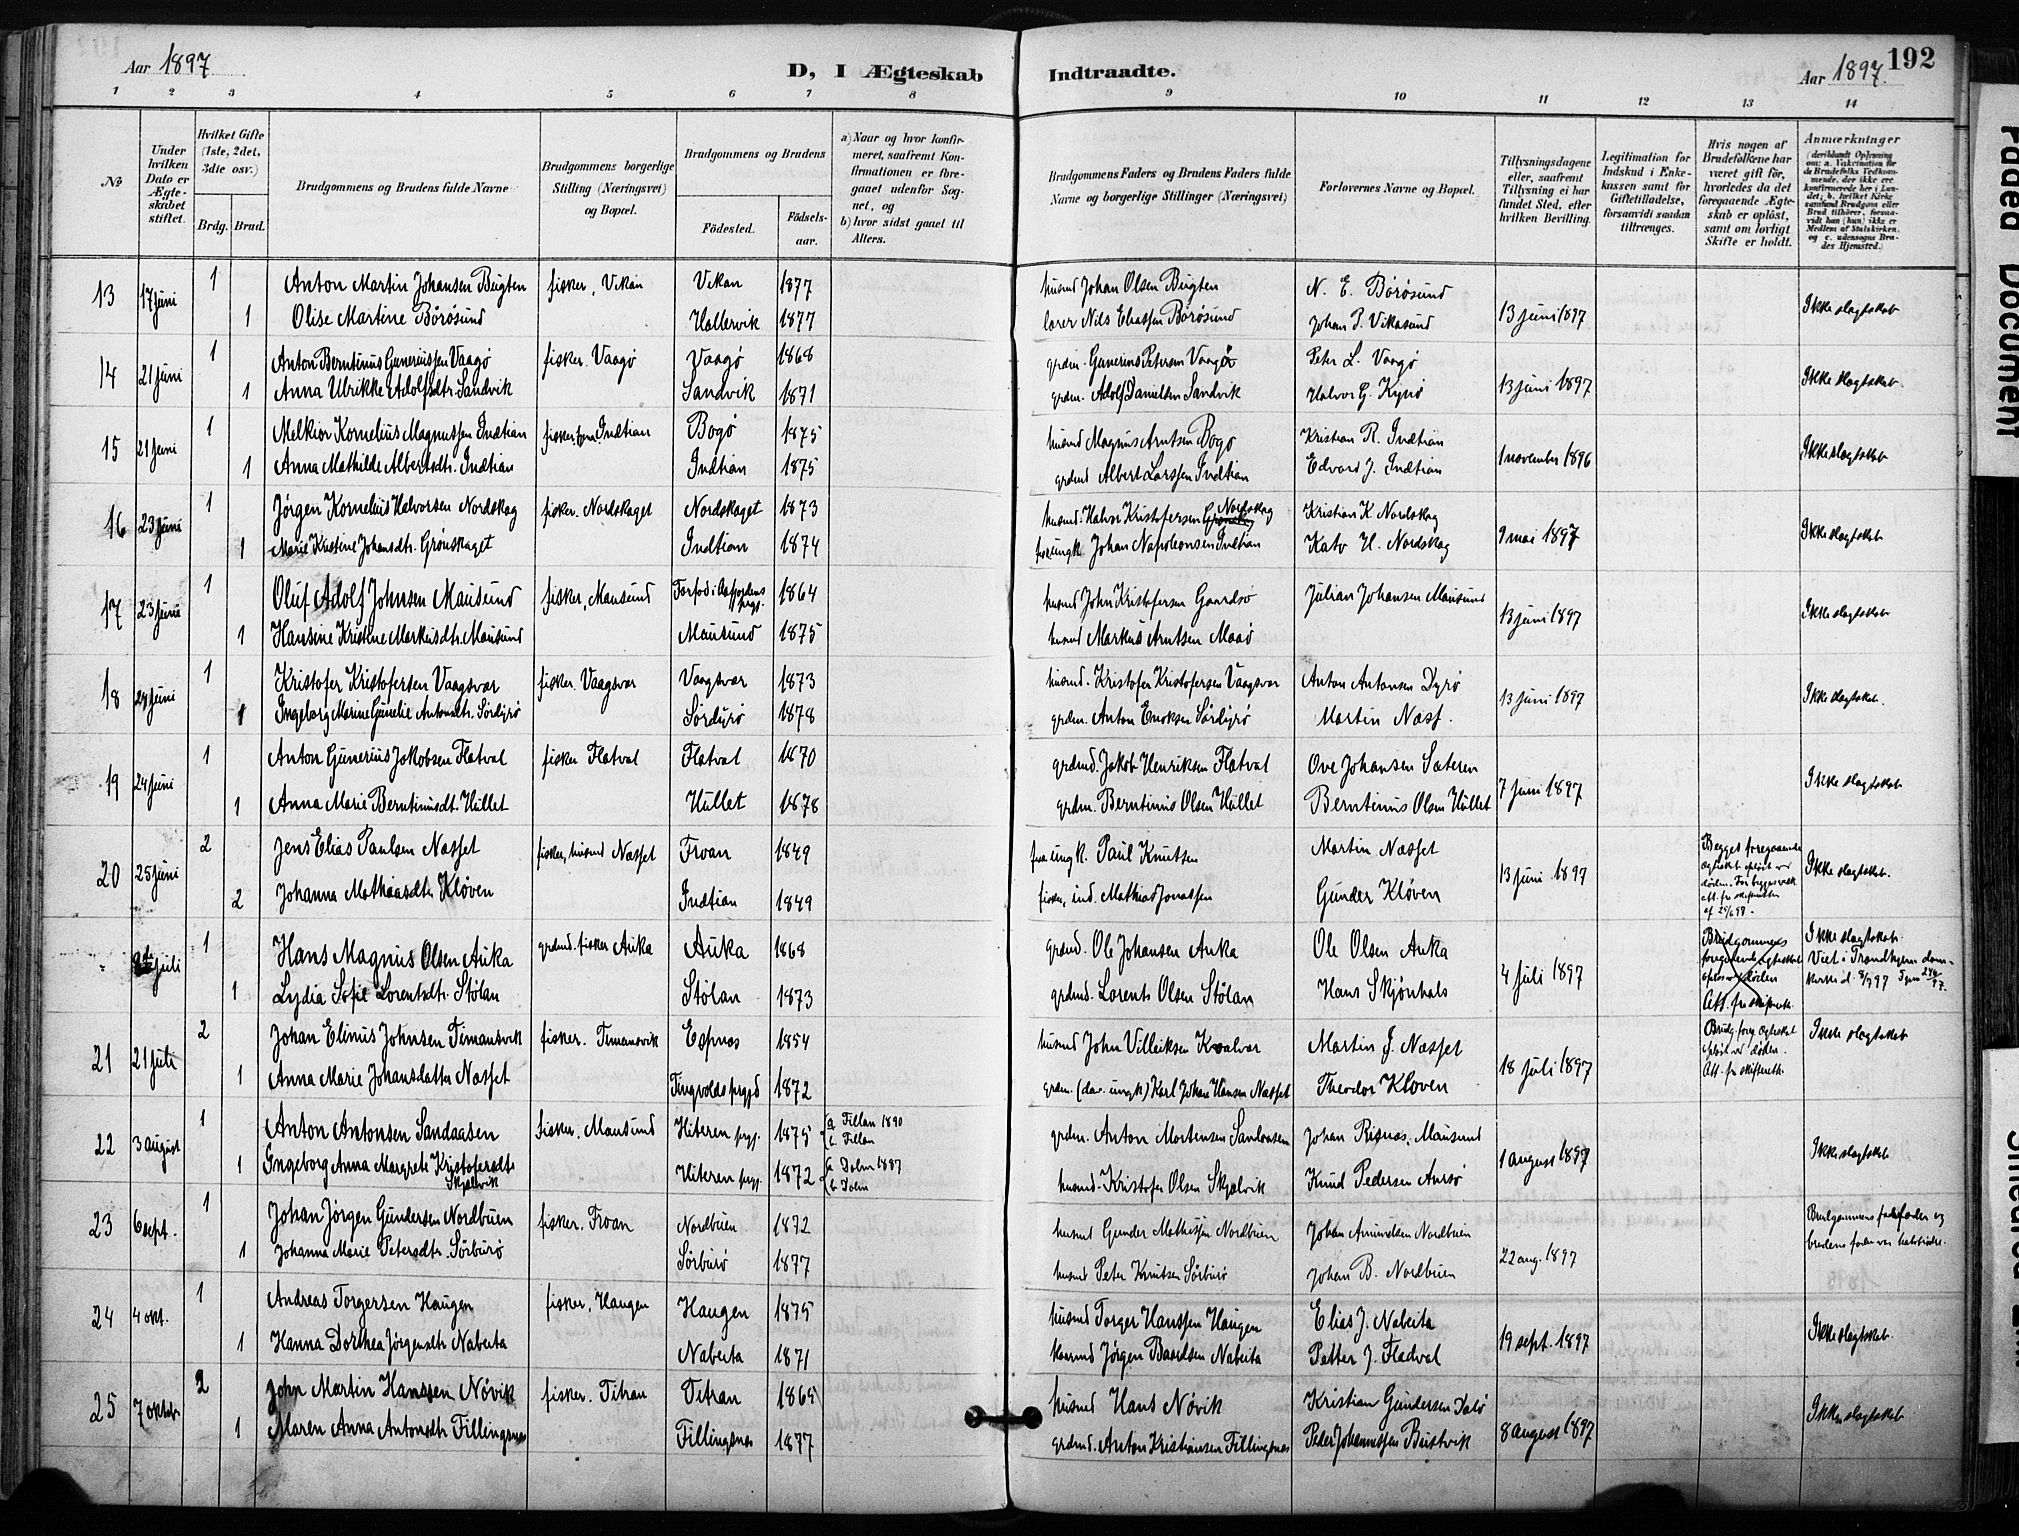 Aar 1897
D, I Ægteskab
Indtraadte.
Aar 1897.
192
1 2 3 4 5 6 7 8 9 10 11 12 13 14
No
Under hvilken Dato er Ægteskabet stiftet.
Hvilket Gifte (1ste, 2det, 3die osv.)
Brdg. Brud.
Brudgommens og Brudens fulde Navne
Brudgommens borgerlige Stilling (Næringsvei) og Bopæl.
Brudgommens og Brudens
Födested. Födselsaar.
a) Naar og hvor konfirmeret, saafremt Konfirmationen er foregaaet udenfor Sognet, og
b) hvor sidst gaaet til Alters.
Brudgommens Faders og Brudens Faders fulde Navne og borgerlige Stillinger (Næringsvei)
Forlovernes Navne og Bopæl.
Tillysningsdagene eller, saafremt Tillysning ei har fundet Sted, efter hvilken Bevilling.
Legitimation for Indskud i Enkekassen samt for Giftetilladelse, forsaavidt saadan tiltrænges.
Hvis nogen af Brudefolkene har været gift för, hvorledes da det foregaaende Ægteskab er oplöst, samt om lovligt Skifte er holdt.
Anmerkninger
13 17 juni 1 Anton Martin Johansen Bugten fisker, Vikan Vikan 1877 husmd Johan Olsen Bugten N. E. Börösund 13 juni 1897 Ikke slægtskab
1 Olise Martine Börösund Hallervik 1877 lærer Nils Eliassen Börösund Johan P. Vikasund
14 21 juni 1 Anton Berntinus Guneriussen Vaagö fisker. Vaagö Vaagö 1868 grdm. Gunerius Petersen Vaagö Peter L. Vaagö 13 juni 1897 Ikke slægtskab.
1 Anna Ulrikke Adolfsdtr. Sandvik Sandvik 1871 grdm. Adolf Danielsen Sandvik Halvor G. Kyrö
15 21 juni 1 Melkior Kornelius Magnussen Indtian fisker Indtian Bogö 1875 husmd Magnus Arntsen Bogö Kristian R. Indtian 1 november 1896 Ikke slægtskab
1 Anna Mathilde Albertsdtr. Indtian Indtian 1875 grdmd Albert Larssen Indtian Edvard J. Indtian
16 23 juni 1 Jörgen Kornelius Halvorsen Nordskag fisker. Nordskaget Nordskaget 1873 husmd. Halvor Kristofersen Nordskag Kristian K. Nordskag 9 mai 1897 Ikke slægtskab
1 Marie Kristine Johansdtr. Grönskaget Indtian 1874 ungk. Johan Napoleonsen Indtian Kato H. Nordskag
17 23 juni 1 Oluf Adolf Johnsen Mausund fisker, Mausund 1864 husmd John Kristofersen Gaardsö Julian Johansen Mausund 13 juni 1897 Ikke slægtskab
1 Hansine Kristine Markusdtr. Mausund Mausund 1875 husmd Markus Arntsen Maaö
18 24 juni 1 Kristofer Kristofersen Vaagsvær fisker. Vaagsvær Vaagsvær 1873 husmd. Kristofer Kristofersen Vaagsvær Anton Antonsen Dyrö 13 juni 1897 Ikke slægtskab.
1 Ingeborg Marine Gunelie Antonsdtr. Sördyrö Sördyrö 1878 grdm. Anton Eriksen Sördyrö Martin Næss.
19 24 juni 1 Anton Gunerius Jakobsen Flatval fisker Flatval Flatval 1870 grdmd. Jakob Henriksen Flatval Ove Johansen Sæteren 7 juni 1897 Ikke slægtskab
1 Anna Marie Berntinusdtr. Hullet Hullet 1878 grdm. Berntinus Olsen Hullet Berntinus Olsen Hullet
20 25 juni 2 Jens Elias Paulsen Næsset fisker, husmd Næsset Froan 1849 ungk. Paul Knutsen Martin Næsset 13 juni 1897 Begges foregaaende Ikke slægtskab.
2 Johanna Mathiasdtr Klöven Indtian 1849 fisker, ind. Mathias Jonassen Gunder Klöven
juli 1 Hans Magnus Olsen Auka grdmd. fisker Auka Auka 1868 grdmd. Ole Johansen Auka Ole Olsen Auka 4 juli 1897 Brudgommens foregaaende ægteskab oplöst v döden Att. fra skifterett. Ikke slægtskab. Viet i Trondhjem domkirke d. 8/7 97
1 Lydia Sofie Lorentsdtr. Stölan Stölan 1873 grdmd. Lorents Olsen Stölan Hans Skjönhals
21 21 juli 2 Johan Elinus Johnsen Timansvik fisker. Timansvik Espnæs 1854 husmd John Villeiksen Kvalvær Martin J. Næsset 18 juli 1897 Brudg. foreg. ægteskab oplöst ved döden. Att. fr skifterett. Ikke slægtskab
1 Anna Marie Johansdatter Næsset Tingvolds prgjd 1872 grdm. (da v. ungk) Karl Johan Hansen Næsset Theodor Klöven
22 3 august 1 Anton Antonsen Sandaasen fisker. Mausund Hiteren prgj. 1875 a Fillan 1890 b Fillan grdm. Anton Mortensen Sandaasen Johan Risnæs. Mausund 1 august 1897 Ikke slægtskab
1 Ingeborg Anna Margrete Kristofersdtr Skjælvik Hiteren prgj. 1872 a Dolm 1887 b Dolm husmd. Kristofer Olsen Skjælvik Knud Pedersen Aursö
23 6 sept. 1 Johan Jörgen Gundersen Nordbuen fisker. Froan Nordbuen 1872 husmd Gunder Mathisen Nordbuen Johan Amundsen Nordbuen 22 aug. 1897 Brudgommens farfader og brudens fader var halvbrödre.
1 Johanna Marie Petersdtr. Sörburö Sörburö 1877 husmd Peter Knutsen Sörburö Johan B. Nordbuen
24 4 okt. 1 Andreas Torgersen Haugen fisker, Haugen Haugen 1875 husmd Torger Hanssen Haugen Elias J. Nabeita 19 sept. 1897 Ikke slægtskab.
1 Hanna Dorthea Jörgensdtr Nabeita Nabeita 1871 Jörgen Baardsen Nabeita Petter J. Fladval
25 7 oktob 2 John Martin Hanssen Növik fisker. Titran Titran 1865 husmd Hans Növik Kristian Gundersen Dalö 8 august 1897 Ikke slægtskab
1 Maren Anna Antonsdtr Fillingsnæs Fillingsnæs 1877 grdmd. Anton Kristiansen Fillingsnæs Peder Johannessen Bustvik
Faded Document